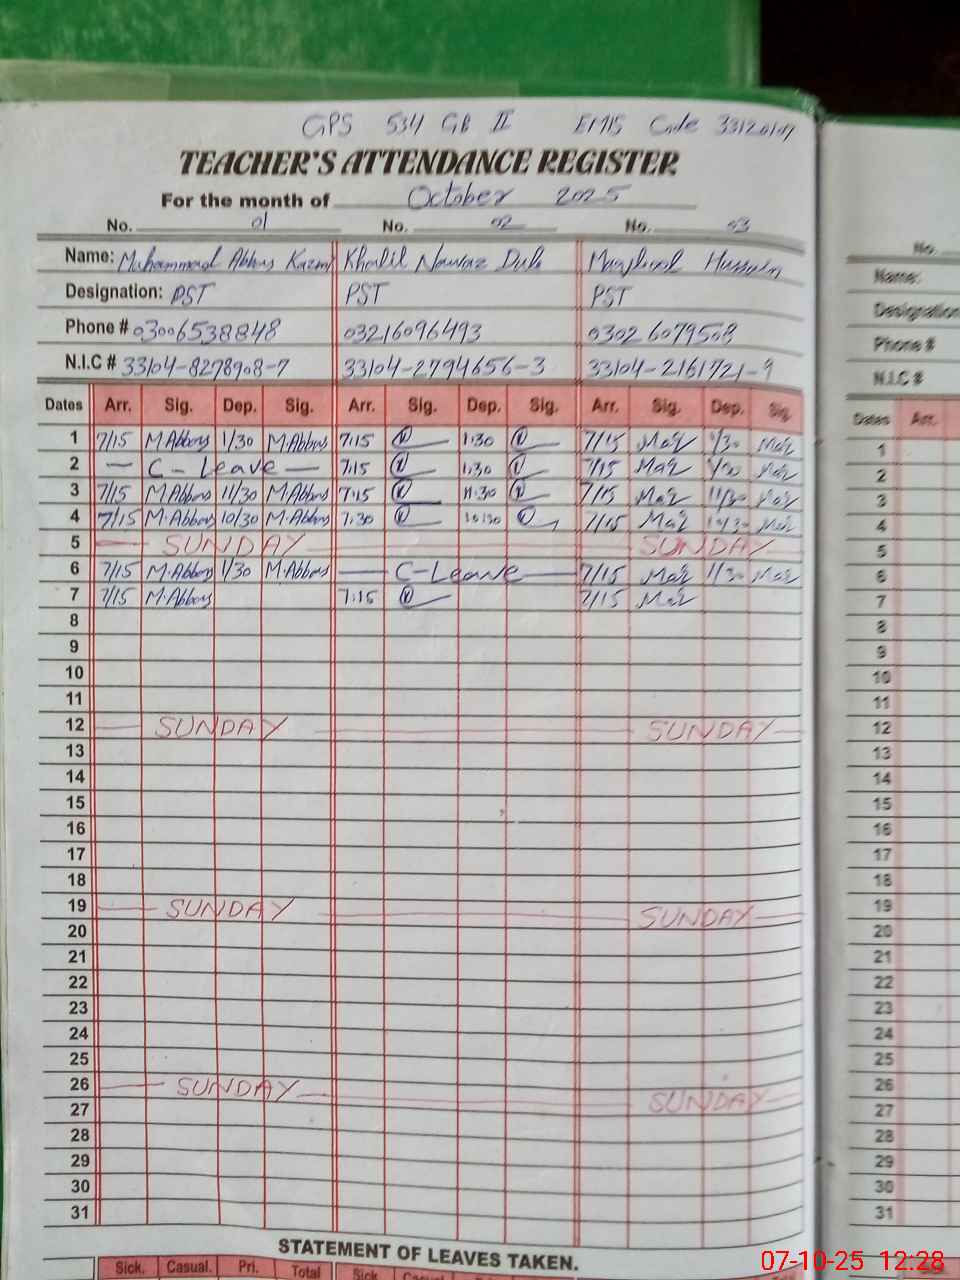 GPS 534 GB II EMIS Code
TEACHER'S ATTENDANCE REGISTER
For the month of October 2025
No. 01 No. 02 No. 03
No.
Name: Muhammad Abbas Kazmi Khalil Nawaz Hussain
Name:
Designation: PST PST PST
Designation
Phone # 03006538848 03216096493 03026079508
Phone #
N.I.C # 33104-8278908-7 33104-2794656-3 33104-2161721-9
N.I.C #
Dates Arr. Sig. Dep. Sig. Arr. Sig. Dep. Sig. Arr. Sig. Dep. Sig
Dates Arr.
1 7/15 M Abbas 1/30 M.Abbas 7:15 1:30 7/15 1/30
2 — C - Leave — 7:15 1:30 7/15
3 7/15 M Abbas 11/30 M.Abbas 7:15 11:30 7/15 11/30
4 7/15 M.Abbas 10/30 M.Abbas 7:30 10:30 7/15 10/30
5 SUNDAY SUNDAY
6 7/15 M.Abbas 1/30 M.Abbas — C-Leave — 7/15 1/30
7 7/15 M.Abbas 7:15 7/15
8
9
10
11
12 SUNDAY SUNDAY
13
14
15
16
17
18
19 SUNDAY SUNDAY
20
21
22
23
24
25
26 SUNDAY SUNDAY
27
28
29
30
31
1
2
3
4
5
6
7
8
9
10
11
12
13
14
15
16
17
18
19
20
21
22
23
24
25
26
27
28
29
30
31
STATEMENT OF LEAVES TAKEN.
Sick. Casual. Pri. Total Sick. Casual.
07-10-25 12:28